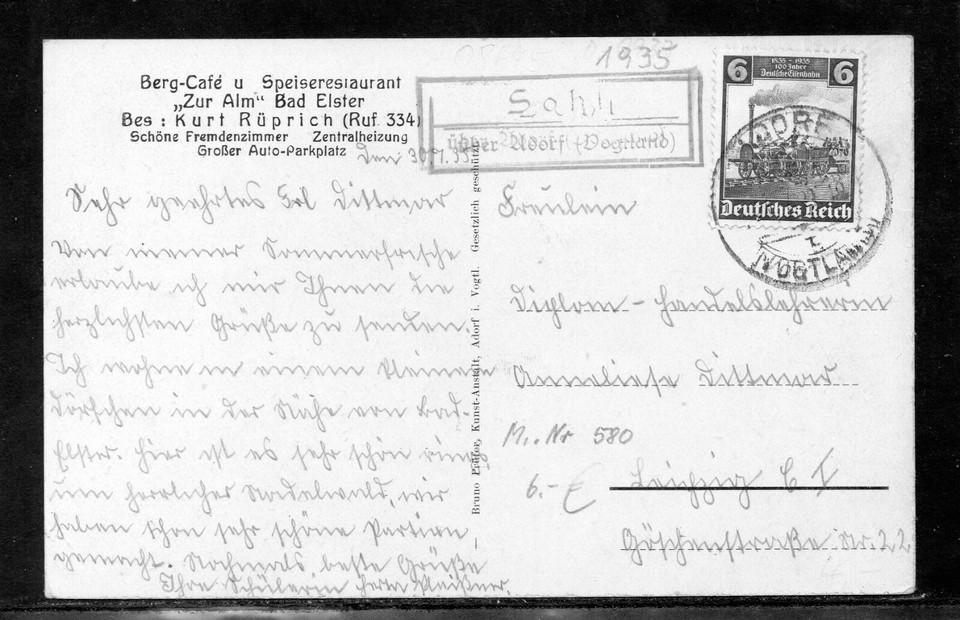 1935
Berg-Café u Speiserestaurant
„Zur Alm“ Bad Elster
Bes: Kurt Rüprich (Ruf. 334)
Schöne Fremdenzimmer Zentralheizung
Großer Auto-Parkplatz
Den 30.7.35
Sehr geehrtes Frl Dittmar
Von meiner Sommerfrische
erlaube ich mir Ihnen die
herzlichsten Grüße zu senden.
Ich wohne in einem kleinen
Dörfchen in der Nähe von Bad-
Elster. Hier ist es sehr schön rings
um herrlicher Nadelwald, wir
haben schon sehr schöne Partien
gemacht. Nochmals beste Grüße
Ihre Schülerin Herta Meißner.
Bruno Prüfer, Kunst-Anstalt, Adorf i. Vogtl. Gesetzlich geschützt.
über Adorf (Vogtland)
6 1835-1935 6
100 Jahre
Deutsche Eisenbahn
Deutsches Reich
ADORF
(VOGTLAND)
Fräulein
Diplom-Handelslehrerin
Anneliese Dittmar
M.. Nr 580
6.- €
Leipzig C I
Göschenstraße Nr. 22